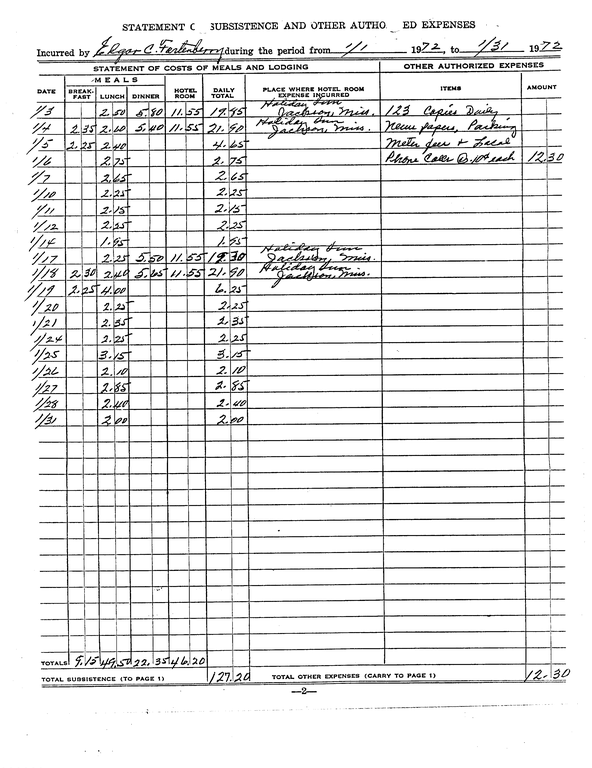 STATEMENT O SUBSISTENCE AND OTHER AUTHO ED EXPENSES
Incurred by Edgar C. Fortenberry during the period from 1/1 1972, to 1/31 1972
STATEMENT OF COSTS OF MEALS AND LODGING OTHER AUTHORIZED EXPENSES
MEALS
DATE BREAK-FAST LUNCH DINNER HOTEL ROOM DAILY TOTAL PLACE WHERE HOTEL ROOM EXPENSE INCURRED ITEMS AMOUNT
1/3 2.50 5.80 11.55 19.85 Holiday Inn Jackson, Miss. 123 Copies Daily
1/4 2.35 2.60 5.40 11.55 21.90 Holiday Inn Jackson, Miss. News papers, Parking
1/5 2.25 2.40 4.65 Meter fees + Local
1/6 2.75 2.75 Phone Calls @ .10¢ each 12.30
1/7 2.65 2.65
1/10 2.25 2.25
1/11 2.15 2.15
1/12 2.25 2.25
1/14 1.95 1.95
1/17 2.25 5.50 11.55 19.30 Holiday Inn Jackson, Miss.
1/18 2.30 2.40 5.65 11.55 21.90 Holiday Inn Jackson, Miss.
1/19 2.25 4.00 6.25
1/20 2.25 2.25
1/21 2.35 2.35
1/24 2.25 2.25
1/25 3.15 3.15
1/26 2.10 2.10
1/27 2.85 2.85
1/28 2.40 2.40
1/31 2.00 2.00
TOTALS 9.15 49.50 22.35 46.20
TOTAL SUBSISTENCE (TO PAGE 1) 127.20 TOTAL OTHER EXPENSES (CARRY TO PAGE 1) 12.30
—2—